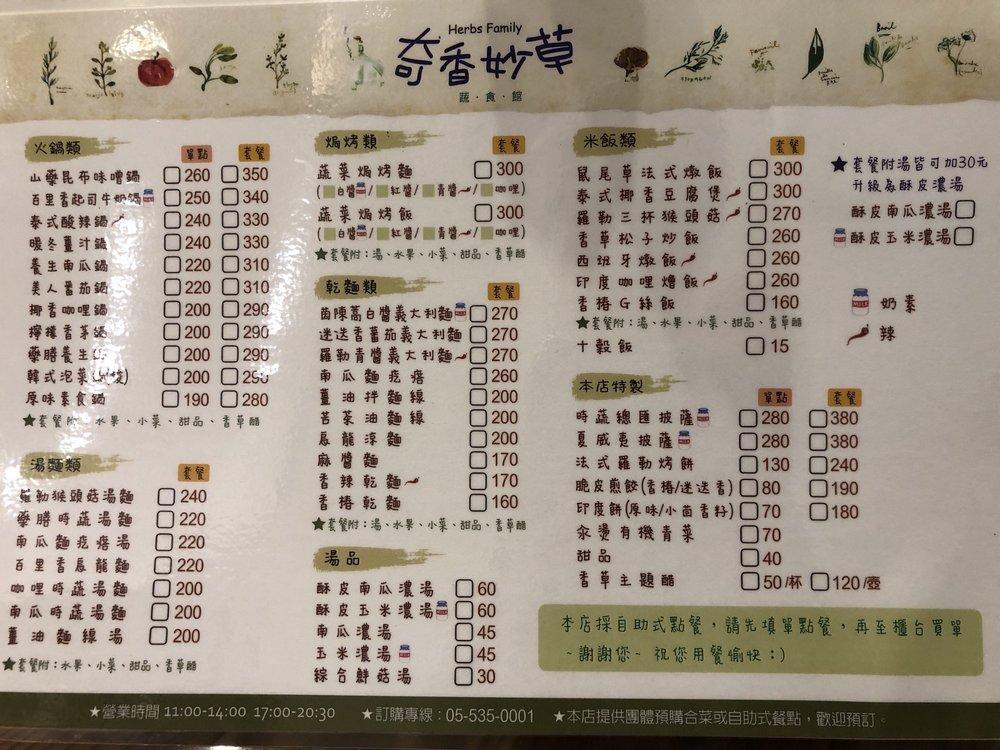 Herbs Family
奇香妙草
蔬·食·館
火鍋類 單點 套餐
山藥昆布味噌鍋 260 350
百里香起司牛奶鍋 250 340
泰式酸辣鍋 240 330
暖冬薑汁鍋 240 330
養生南瓜鍋 220 310
美人番茄鍋 220 310
椰香咖哩鍋 200 290
檸檬香茅鍋 200 290
藥膳養生 200 290
韓式泡菜 200 290
原味素食鍋 190 280
★套餐附:水果、小菜、甜品、香草醋
湯麵類 套餐
羅勒猴頭菇湯麵 240
藥膳時蔬湯麵 220
南瓜麵疙瘩湯 220
百里香烏龍麵 220
咖哩時蔬湯麵 200
南瓜時蔬湯麵 200
薑油麵線湯 200
★套餐附:水果、小菜、甜品、香草醋
焗烤類 套餐
蔬菜焗烤麵 300
(白醬/紅醬/青醬/咖哩)
蔬菜焗烤飯 300
(白醬/紅醬/青醬/咖哩)
★套餐附:湯、水果、小菜、甜品、香草醋
乾麵類 套餐
茵陳蒿白醬義大利麵 270
迷迭香番茄義大利麵 270
羅勒青醬義大利麵 270
南瓜麵疙瘩 260
薑油拌麵線 200
苦茶油麵線 200
烏龍涼麵 200
麻醬麵 170
香辣乾麵 170
香椿乾麵 160
★套餐附:湯、水果、小菜、甜品、香草醋
湯品
酥皮南瓜濃湯 60
酥皮玉米濃湯 60
南瓜濃湯 45
玉米濃湯 45
綜合鮮菇湯 30
米飯類 套餐
鼠尾草法式燉飯 300
泰式椰香豆腐煲 300
羅勒三杯猴頭菇 270
香草松子炒飯 260
西班牙燉飯 260
印度咖哩燴飯 260
香椿G絲飯 160
★套餐附:湯、水果、小菜、甜品、香草醋
十穀飯 15
本店特製 單點 套餐
時蔬總匯披薩 280 380
夏威夷披薩 280 380
法式羅勒烤餅 130 240
脆皮煎餃(香椿/迷迭香) 80 190
印度餅(原味/小茴香籽) 70 180
汆燙有機青菜 70
甜品 40
香草主題醋 50/杯 120/壺
★套餐附湯皆可加30元
升級為酥皮濃湯
酥皮南瓜濃湯
酥皮玉米濃湯
奶素
辣
本店採自助式點餐,請先填單點餐,再至櫃台買單
~謝謝您~ 祝您用餐愉快:)
★營業時間 11:00-14:00 17:00-20:30 ★訂購專線:05-535-0001 ★本店提供團體預購合菜或自助式餐點,歡迎預訂。